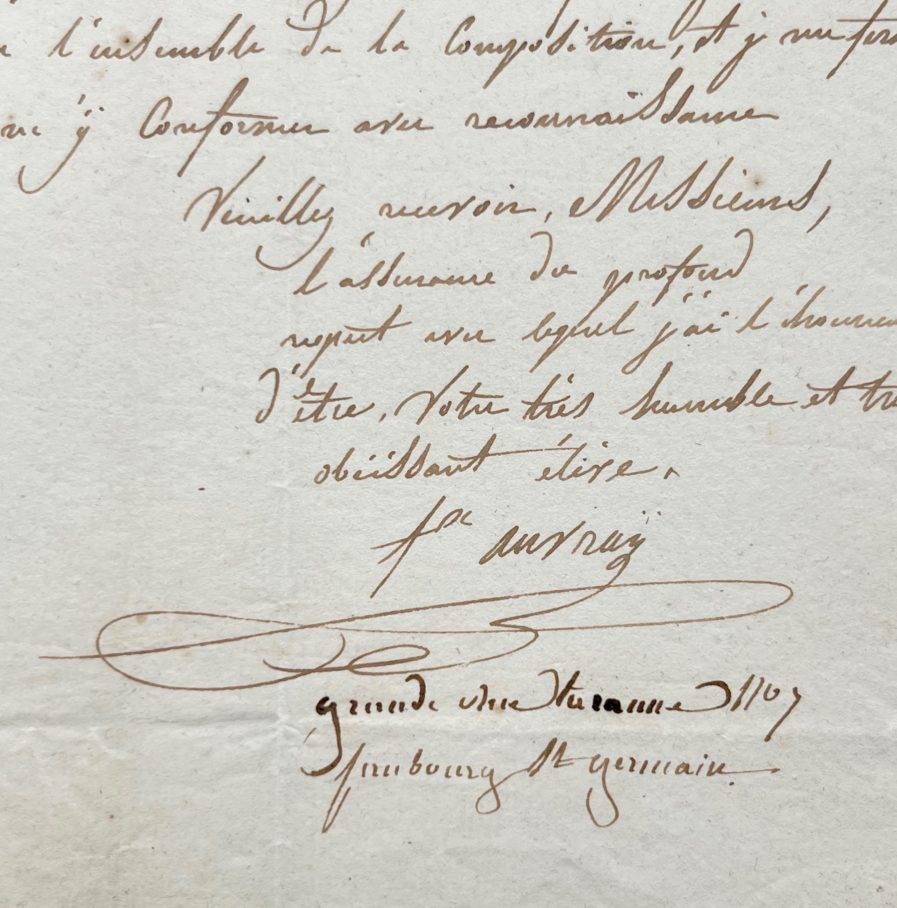 l'ensemble de la Composition, et j me fer
y Conformer avec reconnaissance
Veuillez recevoir, Messieurs,
l'assurance du profond
respect avec lequel j'ai l'honneu
d'être, Votre très humble et tr
obéissant élève.
auvraÿ
grande rue turanne No 7
faubourg St germain.